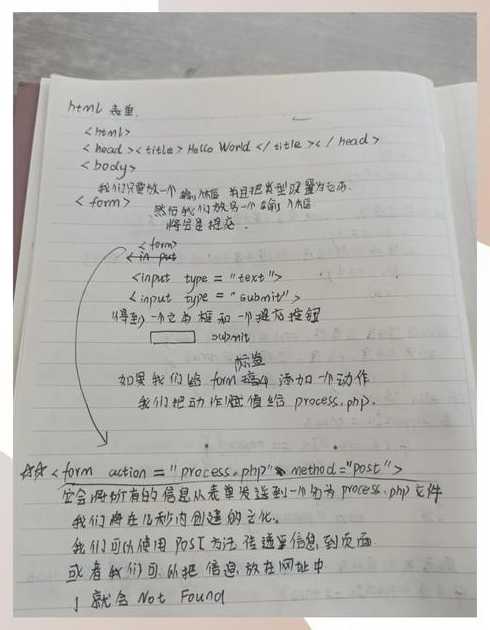 html 表单
<html>
<head><title>Hello World</title></head>
<body>
我们只要放一个输入框 并且把类型设置为它
<form>
然后我们放另一个输入框
将会是提交.
<form>
<input type="text">
<input type="submit">
得到 一个文本框和一个提交按钮
submit
标签
如果我们给 form 添加一个动作
我们把动作赋值给 process.php.
☆☆<form action="process.php" method="post">
它会将所有的信息从表单发送到一个名为 process.php 文件
我们将在几秒内创建的文件.
我们可以使用 POST 方法 传递 信息 到页面
或者我们可以把信息 放在网址中
就会 Not Found